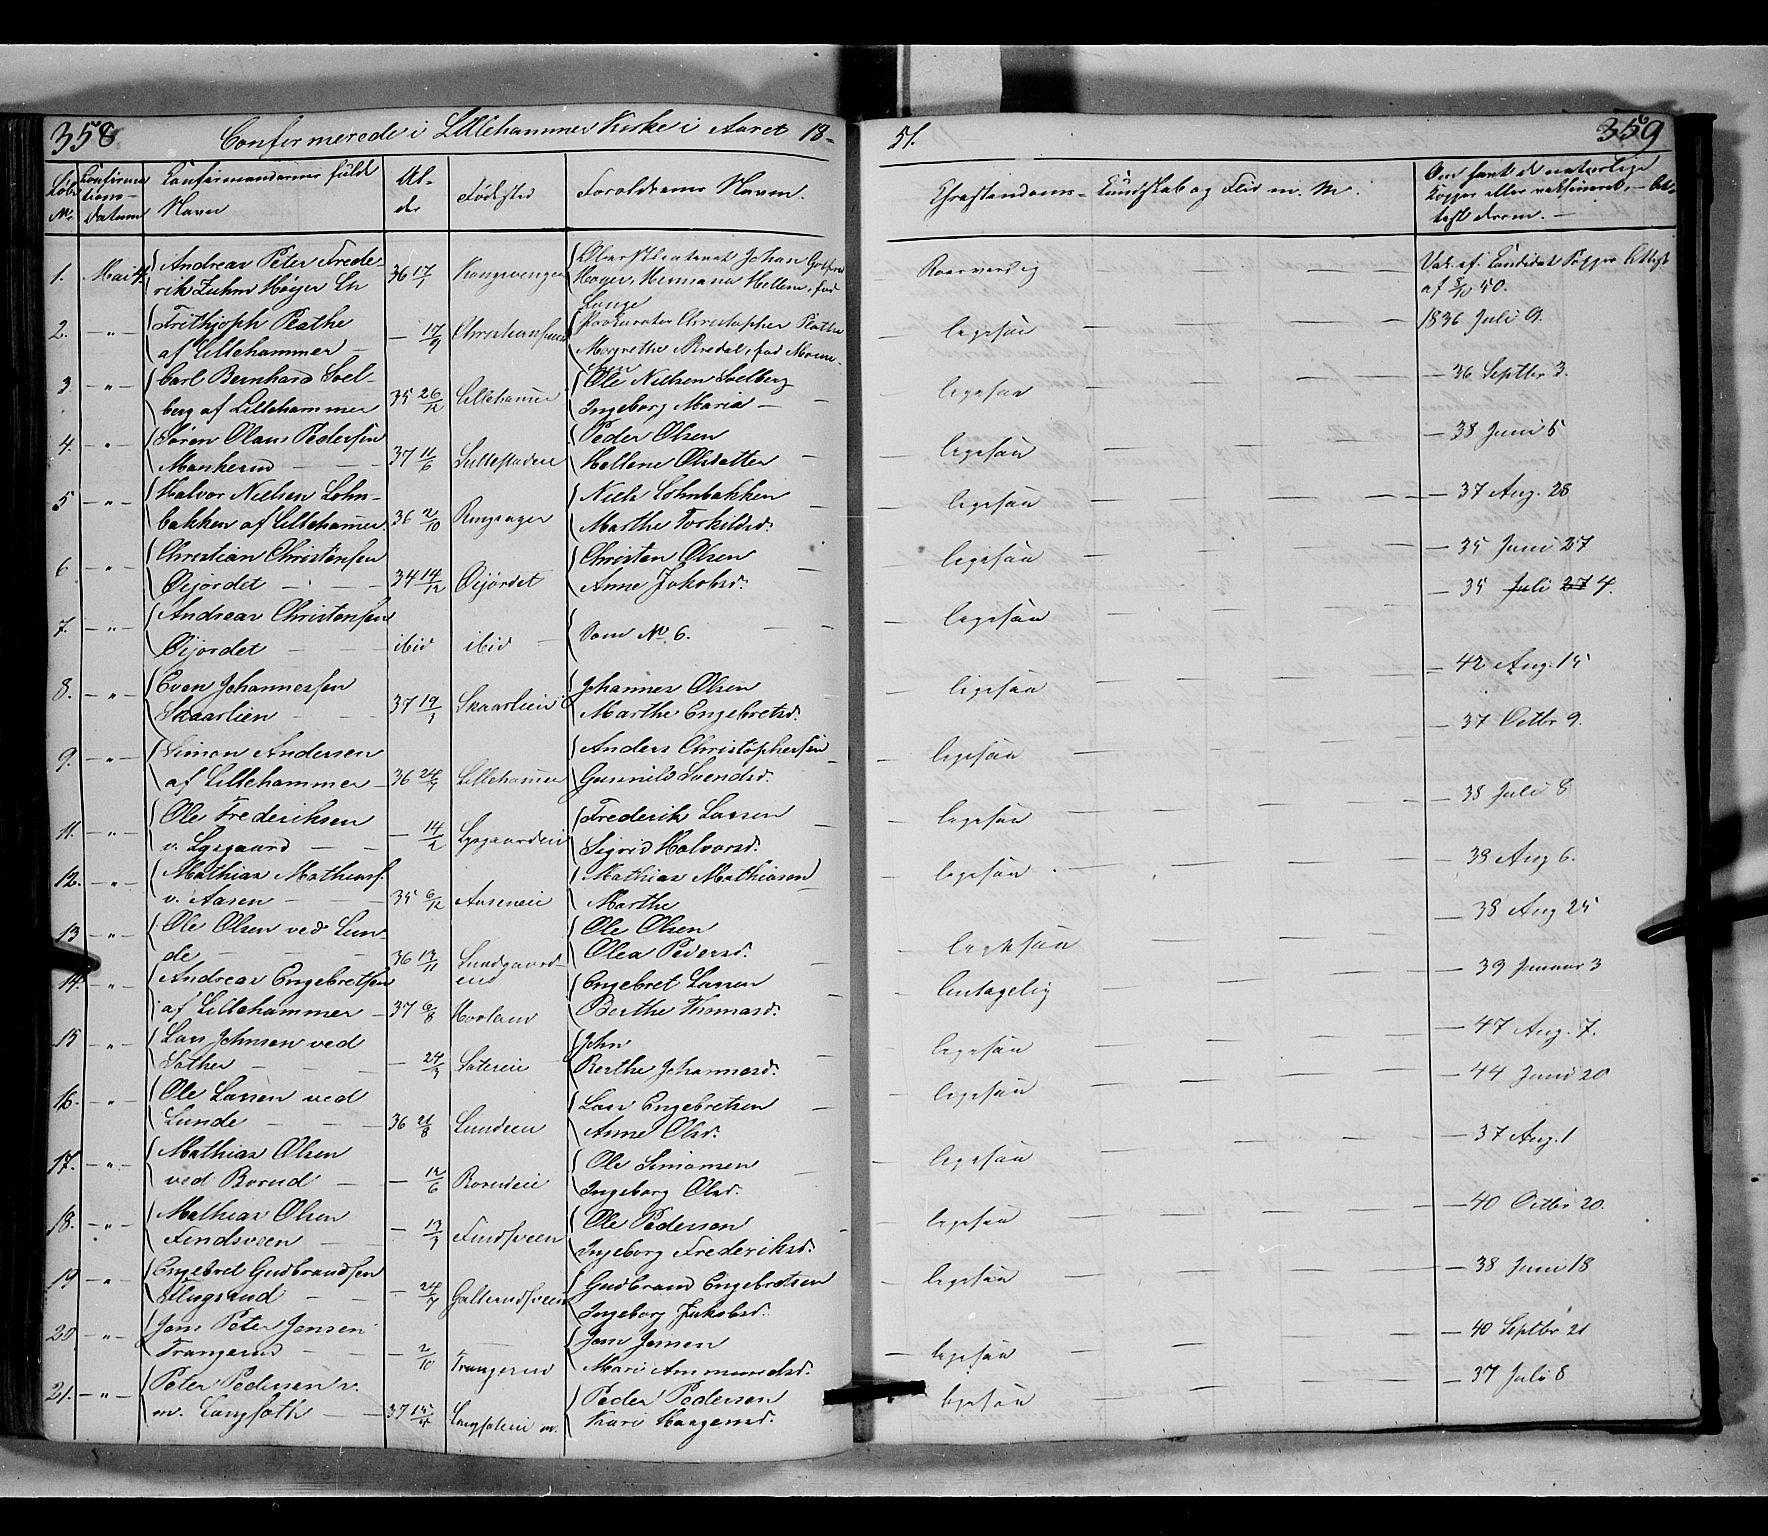 358 Confirmerede i Lillehammer Kirke i Aaret 18-
51. 359
Løbe No. Confirmations Datum Konfirmandernes fulde Navn Al-der Fødested Forældrenes Navn.
Christendoms- Kundskab og Flid m. M. Om havt de naturlige Kopper eller vaksineret, - At-test derom. -
1. Mai 4. Andreas Peter Frede 36 17/7 Kongsvenger Johan
rik Høyer Hermana Hellene, fød Lange
Roesværdig Vak. af Candidat Attest
af 50.
2. -"- Frithjoph Plathe - 17/9 Christianssund Prokurator Christopher Plathe
af Lillehammer - Margrethe Bredal, fød
ligesaa - - - - 1836 Juli 9.
3 -"- Carl Bernhard Soel- 35 26/12 Lillehamer Ole Nielsen Soelberg
berg af Lillehammer Ingeborg Maria -
ligesaa - 36 Septbr 3.
4. -"- Søren Olaus Pedersen 37 11/6 Peder Olsen
Hellene Olsdatter
ligesaa - 38 Juni 5
5 -"- Halvor Nielsen Lohn- 36 2/10 Ringsager Niels Lohnbakken
bakken af Lillehamer Marthe Torkildsd.
ligesaa - 37 Aug. 28
6 -"- Christian Christensen 34 14/12 Øijordet Christen Olsen
Øijordet - - Anne Jakobsd.
ligesaa - 35 Juni 27
7. -"- Andreas Christensen ibid ibid - Som No. 6.
Øijordet - -
ligesaa - 35 Juli 27 4.
8. -"- Even Johannessen 37 19/1 Skaarlien Johannes Olsen
Skaarlien - - Marthe Engebretsd.
ligesaa - 42 Aug. 15
9. -"- Simon Andersen 36 24/3 Lillehamer Anders Christophersen
af Lillehammer - Gunnild Svendsd.
ligesaa - 37 Octbr 9.
11. -"- Ole Frederiksen - 14/2 Lysgaardeie Frederik Larsen
v. Lysgaard - - Sigrid Halvorsd.
ligesaa - 38 Juli 8
12. -"- Mathias Mathiass. 35 6/12 Aaseneie Mathias Mathiasen
v. Aasen - - Marthe
ligesaa - 38 Aug 6.
13 -"- Ole Olsen ved Lun- 36 Lundgaard- Ole Olsen
de - - eie Olea Pedersd.
ligesaa - 38 Aug 25
14. " Andreas Engebretsen 37 6/8 Engebret Larsen
af Lillehammer - Berthe Thomasd.
antagelig - 39 Januar 3
15 -"- Lars Johnsen ved - 24/3 Sætereie John
Sæther - - Berthe Johannesd.
ligesaa - 47 Aug. 7.
16. -"- Ole Larsen ved 36 21/8 Lundeeie Lars Engebretsen
Lunde - - Anne Olsd.
ligesaa - 44 Juni 20
17. -"- Mathias Olsen - 12/6 Borudeie Ole Simonsen
ved Borud - Ingeborg Olsd.
ligesaa - 37 Aug. 1
18. -"- Mathias Olsen - 13/3 Findsveen Ole Pedersen
Findsveen - Ingeborg Frederiksd.
ligesaa - 40 Octbr 20.
19 -"- Engebret Gudbrandsen - 24/7 Galterudsveen Gudbrand Engebretsen
Flugstud - - Ingeborg Jakobsd.
ligesaa - 38 Juni 18
20 -"- Jens Peter Jensen - 2/10 Trangerud Jens Jensen
Trangerud - - Mari Ammundsd.
ligesaa - 40 Septbr 21
21. -"- Peter Pedersen v. 37 Peder Pedersen
m. Langsæth - Kari Haagensd.
ligesaa - 37 Juli 8